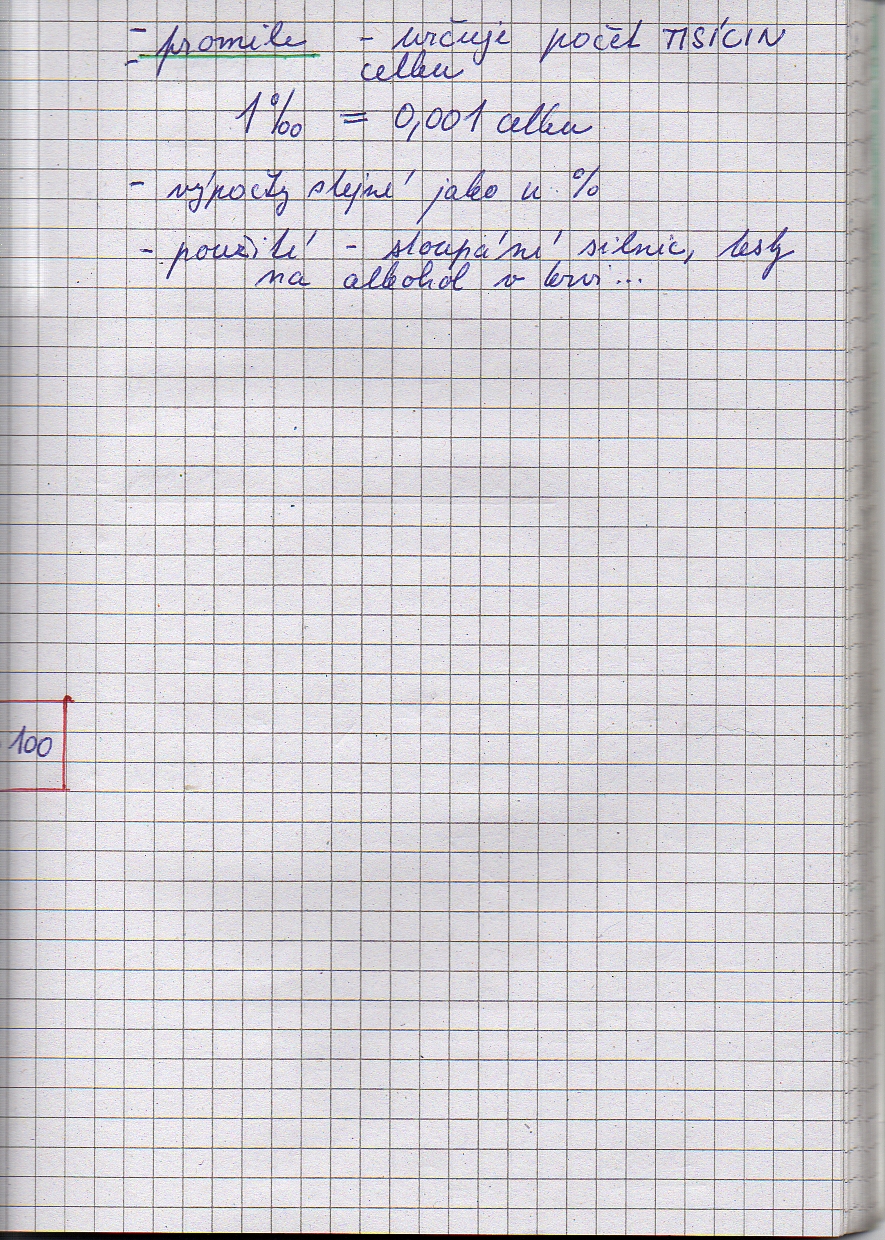 - promile - určuje počet TISÍCIN
- celku
1‰ = 0,001 celku
- výpočty stejné jako u %
- použití - stoupání silnic, testy
na alkohol v krvi...
100